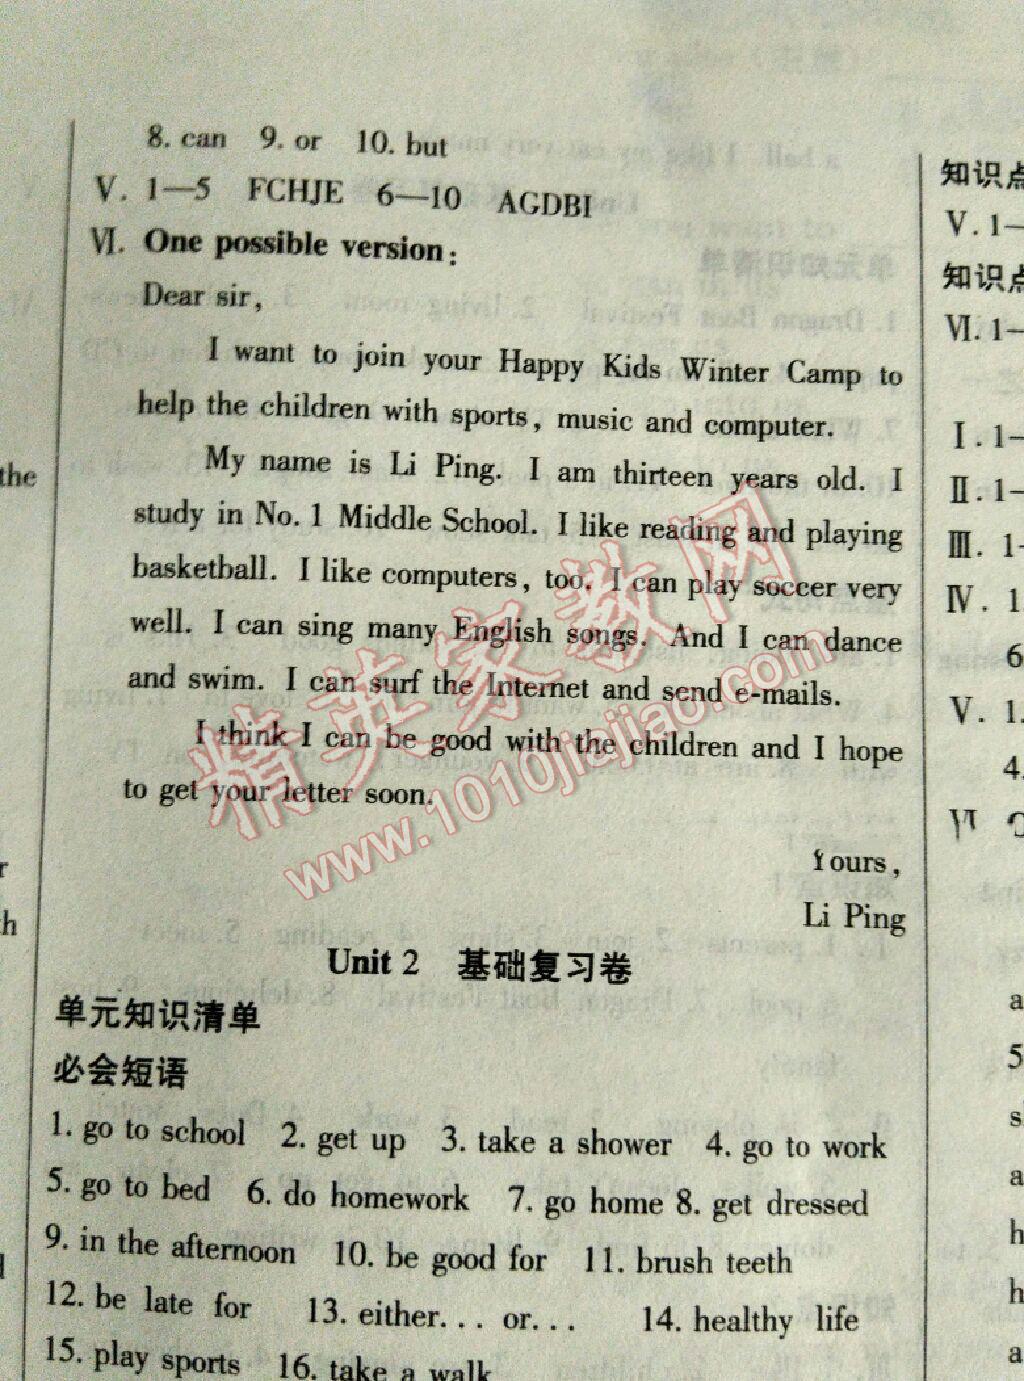 8. can 9. or 10. but
Ⅴ. 1—5 FCHJE 6—10 AGDBI
Ⅵ. One possible version:
Dear sir,
I want to join your Happy Kids Winter Camp to
help the children with sports, music and computer.
My name is Li Ping. I am thirteen years old. I
study in No. 1 Middle School. I like reading and playing
basketball. I like computers, too. I can play soccer very
well. I can sing many English songs. And I can dance
and swim. I can surf the Internet and send e-mails.
I think I can be good with the children and I hope
to get your letter soon.
Yours,
Li Ping
Unit 2 基础复习卷
单元知识清单
必会短语
1. go to school 2. get up 3. take a shower 4. go to work
5. go to bed 6. do homework 7. go home 8. get dressed
9. in the afternoon 10. be good for 11. brush teeth
12. be late for 13. either... or... 14. healthy life
15. play sports 16. take a walk
the
知识点
Ⅴ. 1—
知识点
Ⅵ. 1—
Ⅰ. 1—
Ⅱ. 1—
Ⅲ. 1—
Ⅳ. 1.
6
Ⅴ. 1.
4.
a
5
s
a
h
h
a
精英家教网
www.1010jiajiao.com